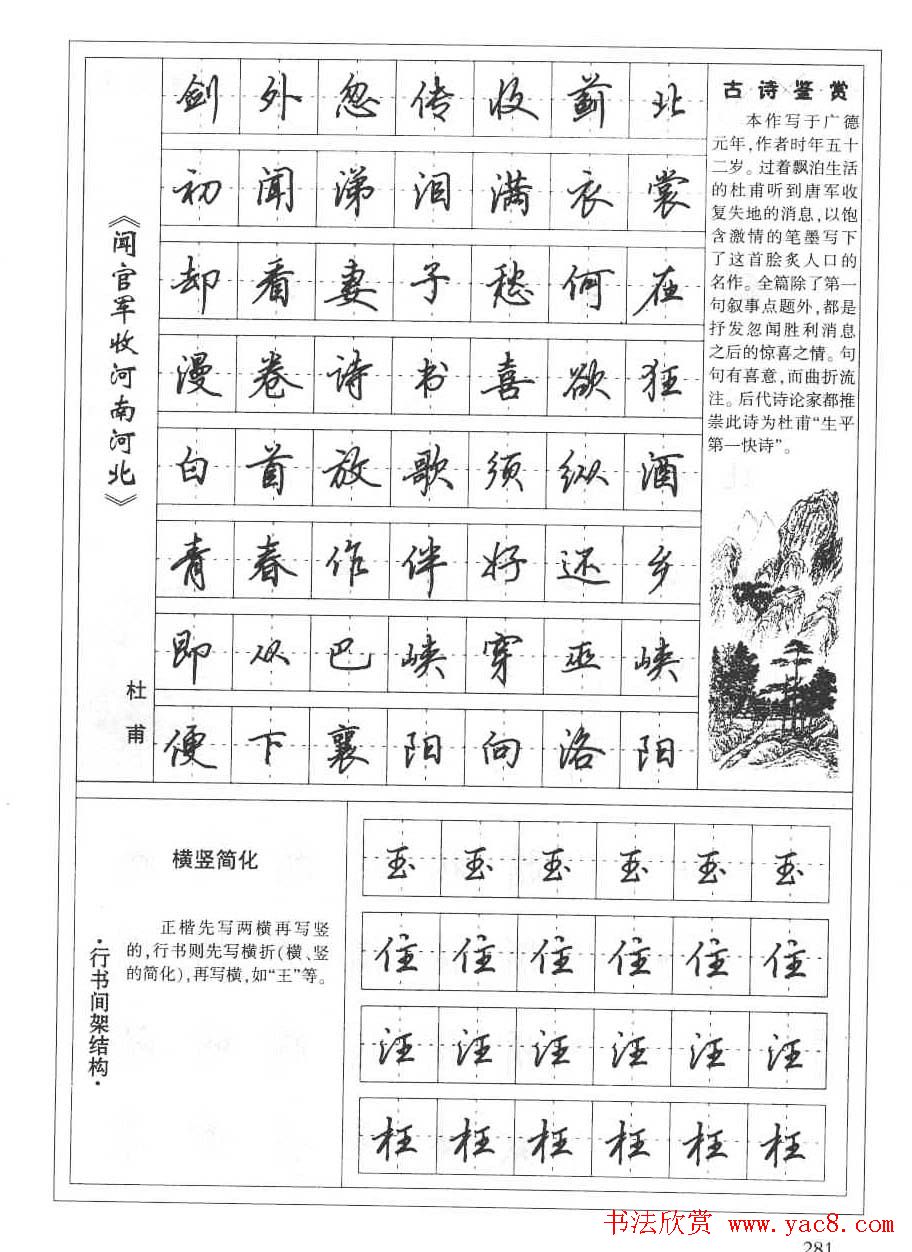 《闻官军收河南河北》
杜甫
剑外忽传收蓟北
初闻涕泪满衣裳
却看妻子愁何在
漫卷诗书喜欲狂
白首放歌须纵酒
青春作伴好还乡
即从巴峡穿巫峡
便下襄阳向洛阳
古诗鉴赏
本作写于广德
元年,作者时年五十
二岁。过着飘泊生活
的杜甫听到唐军收
复失地的消息,以饱
含激情的笔墨写下
了这首脍炙人口的
名作。全篇除了第一
句叙事点题外,都是
抒发忽闻胜利消息
之后的惊喜之情。句
句有喜意,而曲折流
注。后代诗论家都推
崇此诗为杜甫“生平
第一快诗”。
·行书间架结构·
横竖简化
正楷先写两横再写竖
的,行书则先写横折(横、竖
的简化),再写横,如“王”等。
玉玉玉玉玉玉
住住住住住住
汪汪汪汪汪汪
枉枉枉枉枉枉
书法欣赏 www.yac8.com
281